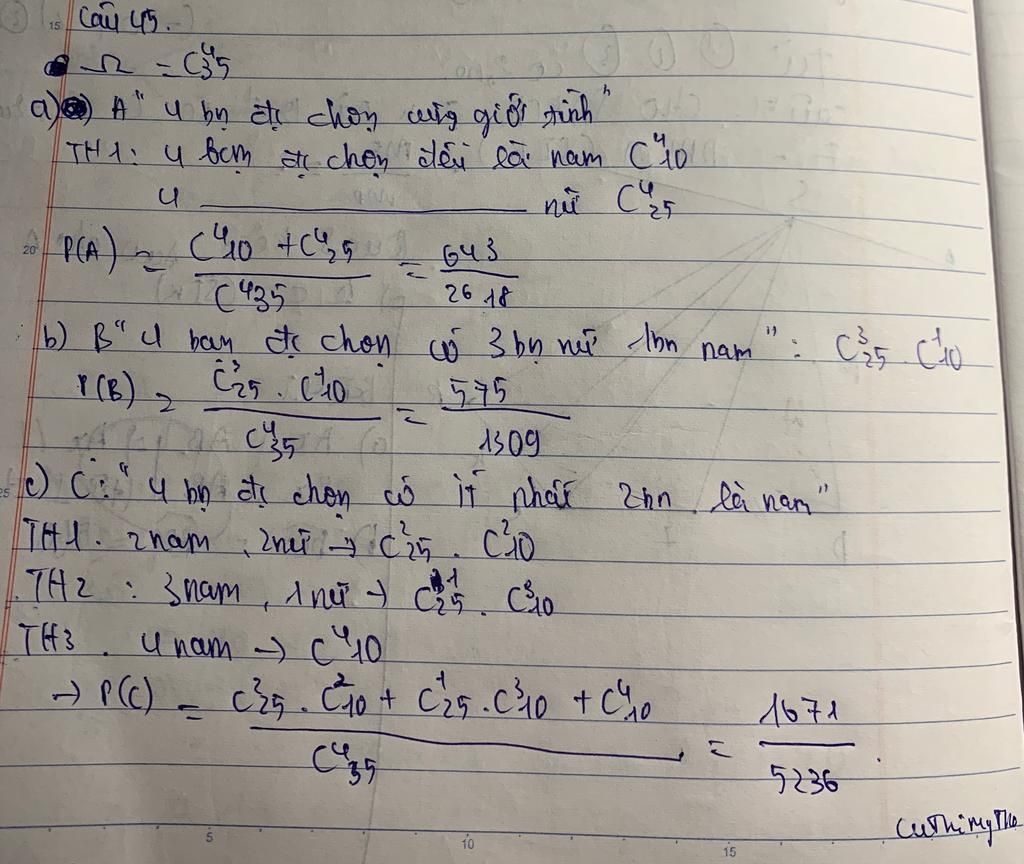 Câu 45.
Ω = C⁴35
a) A" 4 bạn đc chọn cùng giới tính"
TH1: 4 bạn đc chọn đều là nam C⁴10
4 ——————— nữ C⁴25
P(A) = (C⁴10 + C⁴25)/C⁴35 = 643/2618
b) B" 4 bạn đc chọn có 3 bn nữ 1bn nam": C³25 . C¹10
P(B) = (C³25 . C¹10)/C⁴35 = 575/1309
c) C: "4 bn đc chọn có ít nhất 2bn là nam"
TH1. 2nam, 2nữ → C²25 . C²10
TH2 : 3nam, 1nữ → C¹25 . C³10
TH3 . 4nam → C⁴10
→ P(C) = (C²25 . C²10 + C¹25 . C³10 + C⁴10)/C⁴35 = 1671/5236 .
15
20
25
5 10 15